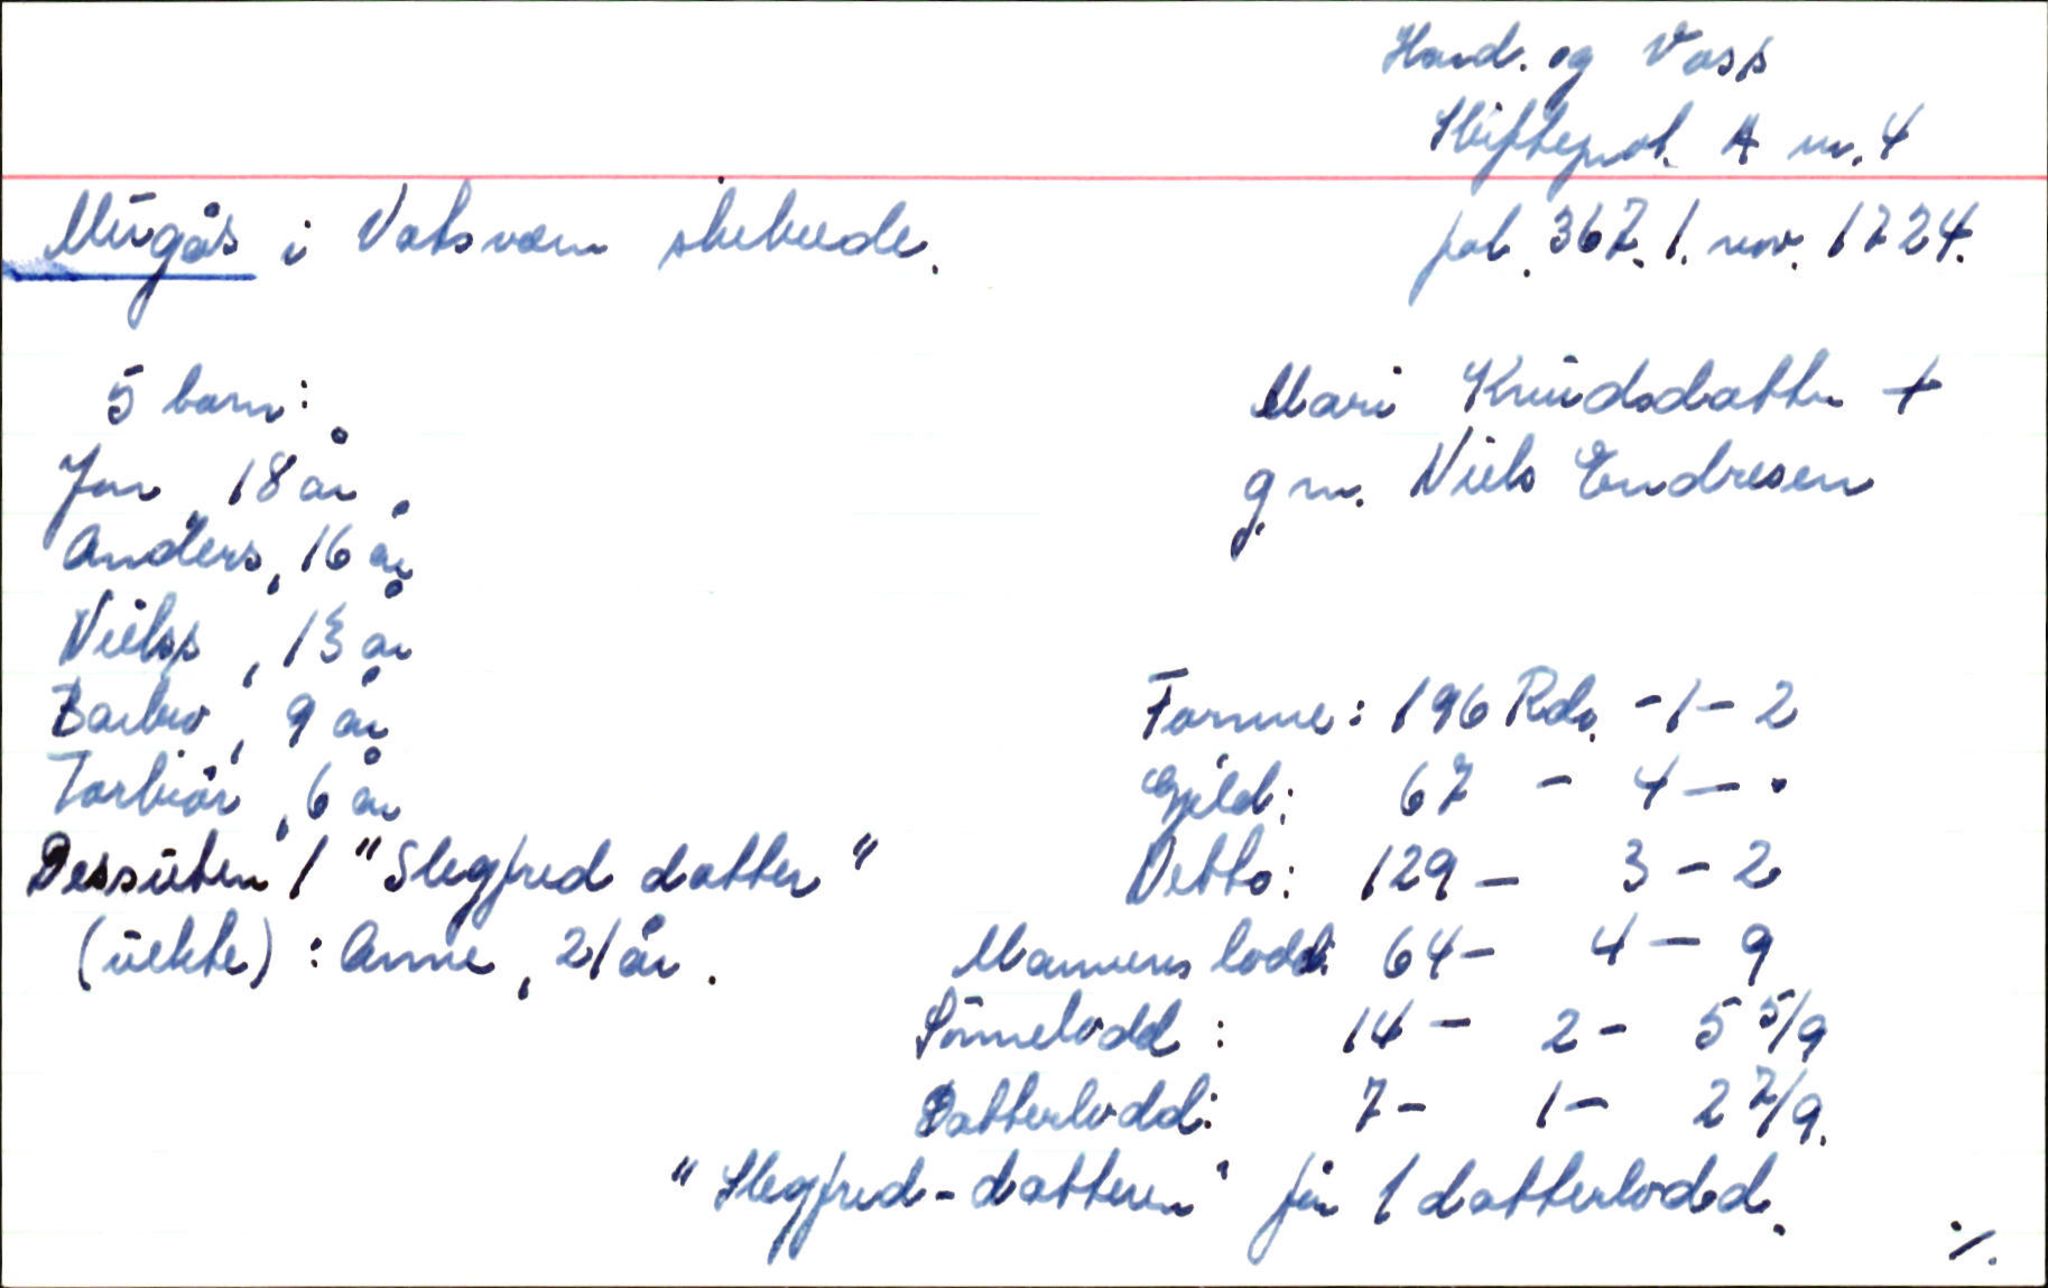 Hard. og Voss
Skiftepot. A nr. 4
Mügås i Vatsvøm skibrede.
fol. 367. 1. nov. 1724.
5 barn:
Mari Knüdsdatter +
g.m. Niels Endresen
Jon 18 år
Anders, 16 år
Nielss, 13 år
Barbro, 9 år
Torbiör, 6 år
Dessüten 1 "Slegfred datter"
(üekte): Anne, 21 år.
Formue: 196 Rdr. - 1 - 2
Gjeld: 67 - 4 - •
Netto: 129 - 3 - 2
Mannens lodd: 64 - 4 - 9
Sönnelodd: 14 - 2 - 5 5/9
Datterlodd: 7 - 1 - 2 7/9.
"Slegfred-datteren" får 1 datterlodd.
./.